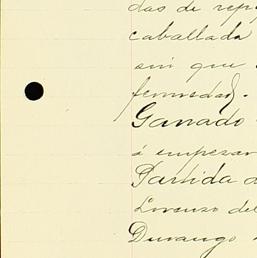 das de rep
caballada
sin que
fermedad.
Ganado
á empezar
Partida d
Lorenzo del
Durango